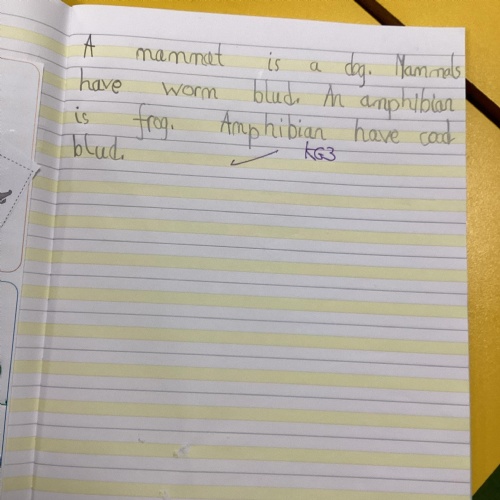 A mammal is a dog. Mammals
have worm blud. An amphibian
is frog. Amphibian have coad
blud.
KG3